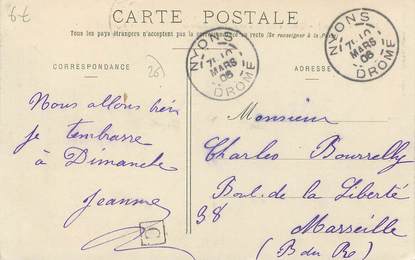 6 t
CARTE POSTALE
Tous les pays étrangers n'acceptent pas la correspondance au recto (Se renseigner à la Poste)
CORRESPONDANCE
ADRESSE
26
NYONS
MARS
08
DROME
NYONS
MARS
08
DROME
Nous allons bien
je t'embrasse
à Dimanche
Jeanne
C
Monsieur
Charles Bourrelly
Boul. de la Liberté
38
Marseille
(B du Re)